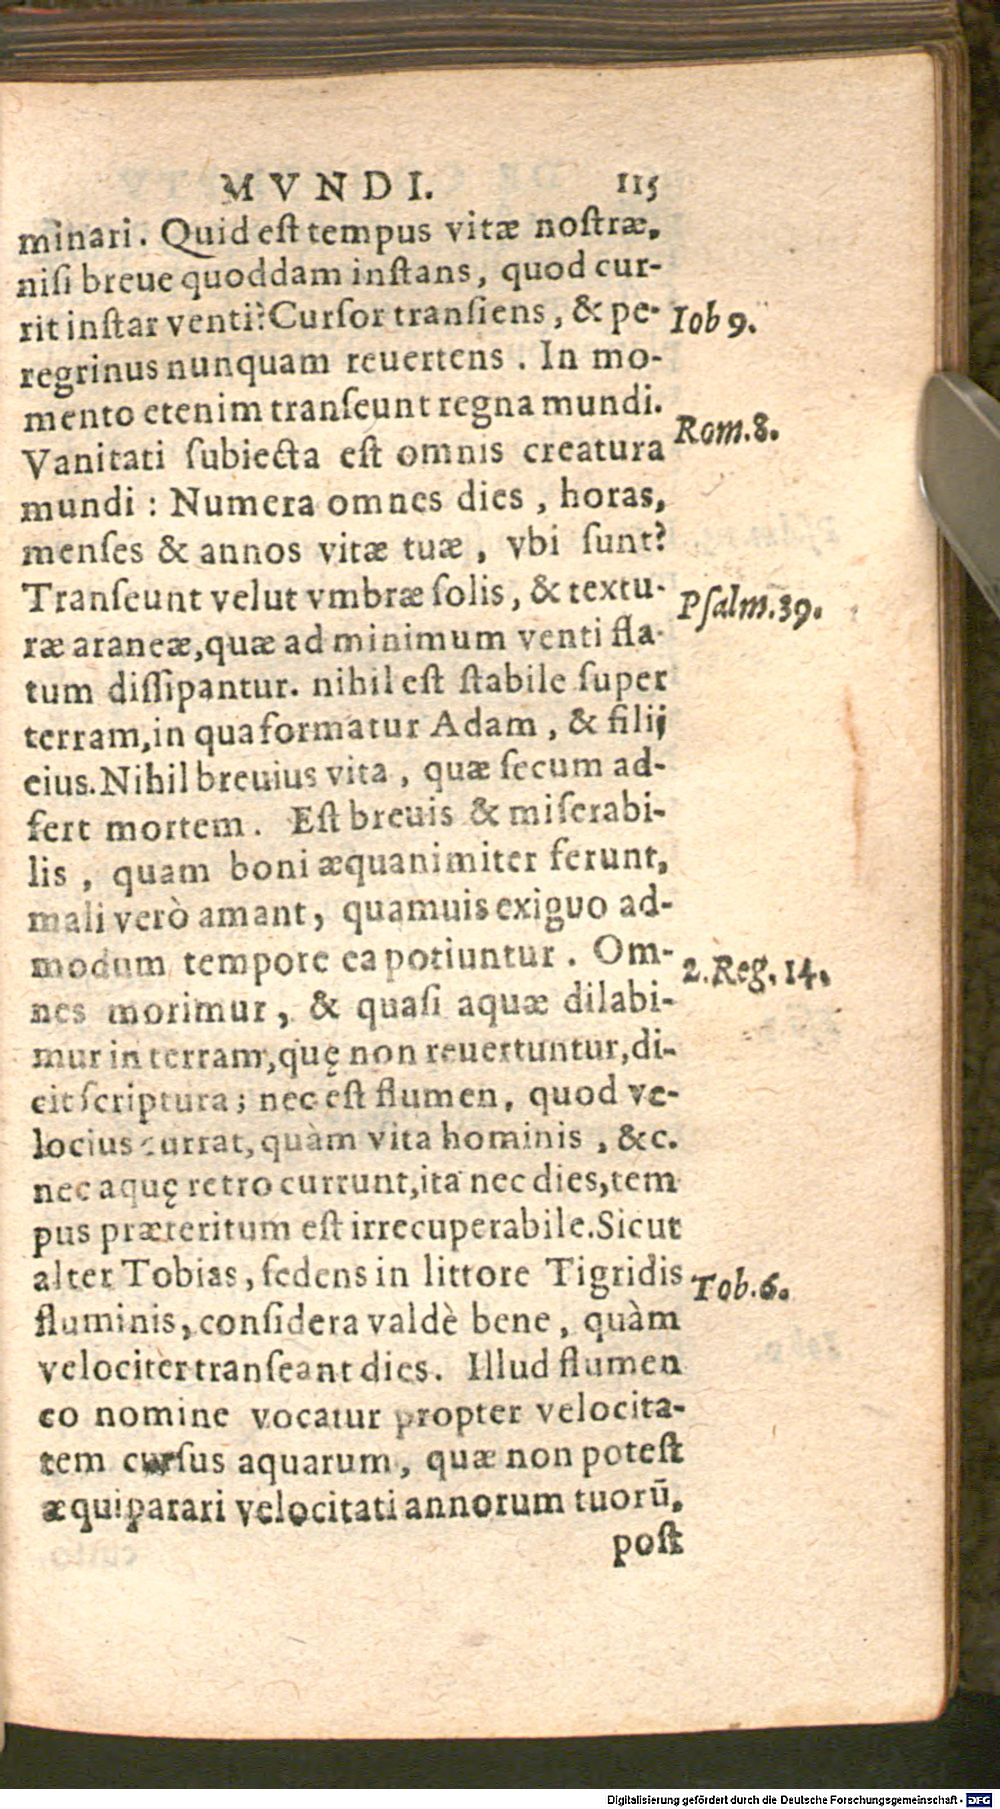 MVNDI. 115
minari. Quid est tempus vitæ nostræ,
nisi breue quoddam instans, quod cur-
rit instar venti? Cursor transiens, & pe-
Iob 9.
regrinus nunquam reuertens. In mo-
mento etenim transeunt regna mundi.
Vanitati subiecta est omnis creatura
Rom. 8.
mundi: Numera omnes dies, horas,
menses & annos vitæ tuæ, vbi sunt?
Transeunt velut vmbræ solis, & textu-
Psalm. 39.
ræ araneæ, quæ ad minimum venti fla-
tum dissipantur. nihil est stabile super
terram, in qua formatur Adam, & filij
eius. Nihil breuius vita, quæ secum ad-
fert mortem. Est breuis & miserabi-
lis, quam boni æquanimiter ferunt,
mali verò amant, quamuis exiguo ad-
modum tempore ea potiuntur. Om-
2. Reg. 14.
nes morimur, & quasi aquæ dilabi-
mur in terram, quę non reuertuntur, di-
cit scriptura; nec est flumen, quod ve-
locius currat, quàm vita hominis, &c.
nec aquę retro currunt, ita nec dies, tem
pus præteritum est irrecuperabile. Sicut
alter Tobias, sedens in littore Tigridis
Tob. 6.
fluminis, considera valdè bene, quàm
velociter transeant dies. Illud flumen
eo nomine vocatur propter velocita-
tem cursus aquarum, quæ non potest
æquiparari velocitati annorum tuorũ,
post
Digitalisierung gefördert durch die Deutsche Forschungsgemeinschaft - DFG